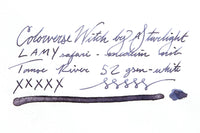 Colorverse Witch by A Starlight
LAMY safari - medium nib
Tomoe River 52 gsm - white
XXXXX